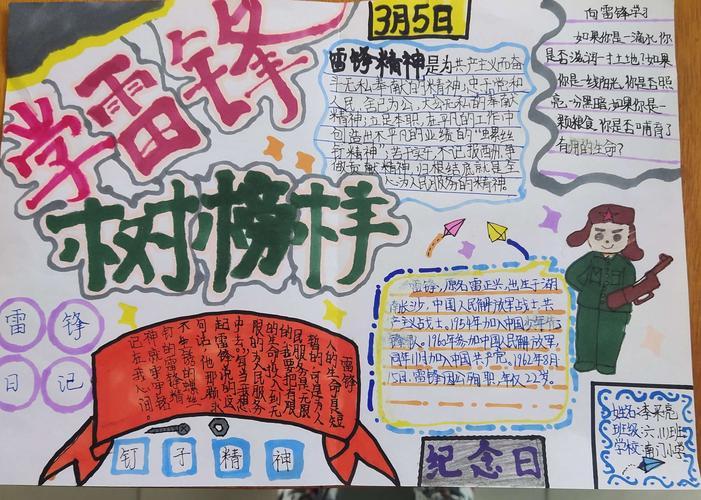 学雷锋
树榜样
3月5日
雷锋精神是为共产主义而奋
斗无私奉献的精神;忠于党和
人民、舍己为公、大公无私的奉献
精神;立足本职、在平凡的工作中
创造出不平凡的业绩的"螺丝
钉精神";苦干实干、不记报酬、争
做贡献精神,归根结底就是全
心为人民服务的精神。
向雷锋学习
如果你是一滴水,你
是否滋润一寸土地?如果
你是一线阳光,你是否照
亮一分黑暗,如果你是一
颗粮食,你是否哺育了
有用的生命?
雷锋
日记
雷锋
人的生命是短
暂的,可是为人
民服务是无限
的,我要把有限
的生命,投入到无
限的为人民服务
中去。
起雷锋说的这
句话,他那
不生锈的螺丝
钉的雷锋精
神
记在我人间。
钉子精神
雷锋,原名雷正兴,出生于湖
南长沙,中国人民解放军战士,共
产主义战士。1954年加入中国少年先
锋队。1960年参加中国人民解放军,
同年11月加入中国共产党。1962年8月
15日,雷锋因公殉职,年仅22岁。
纪念日
姓名:李
班级:六.(1)班
学校:南门小学